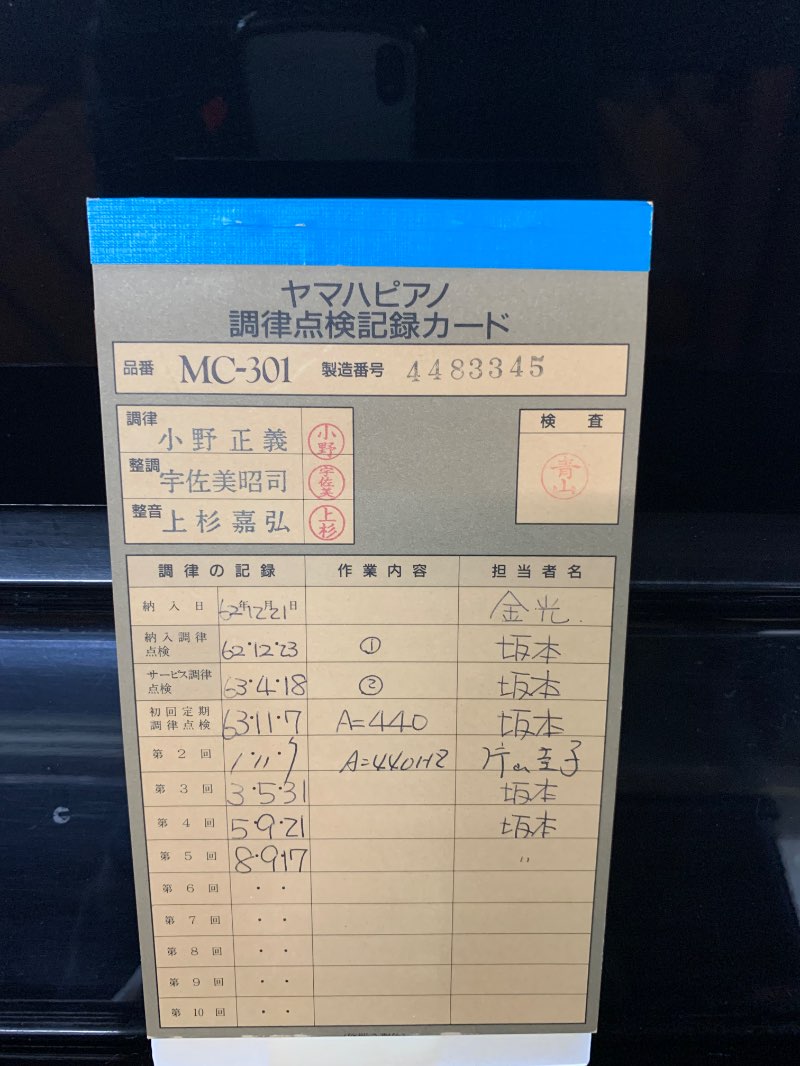 ヤマハピアノ
調律点検記録カード
品番 MC-301 製造番号 4483345
調律 小野正義 小野
整調 宇佐美昭司 宇佐美
整音 上杉嘉弘 上杉
検査
青山
調律の記録 作業内容 担当者名
納入日 62年12月21日 金光
納入調律点検 62・12・23 ① 坂本
サービス調律点検 63・4・18 ② 坂本
初回定期調律点検 63・11・7 A=440 坂本
第2回 1・11・7 A=440HZ
第3回 3・5・31 坂本
第4回 5・9・21 坂本
第5回 8・9・17 〃
第6回 ・・
第7回 ・・
第8回 ・・
第9回 ・・
第10回 ・・